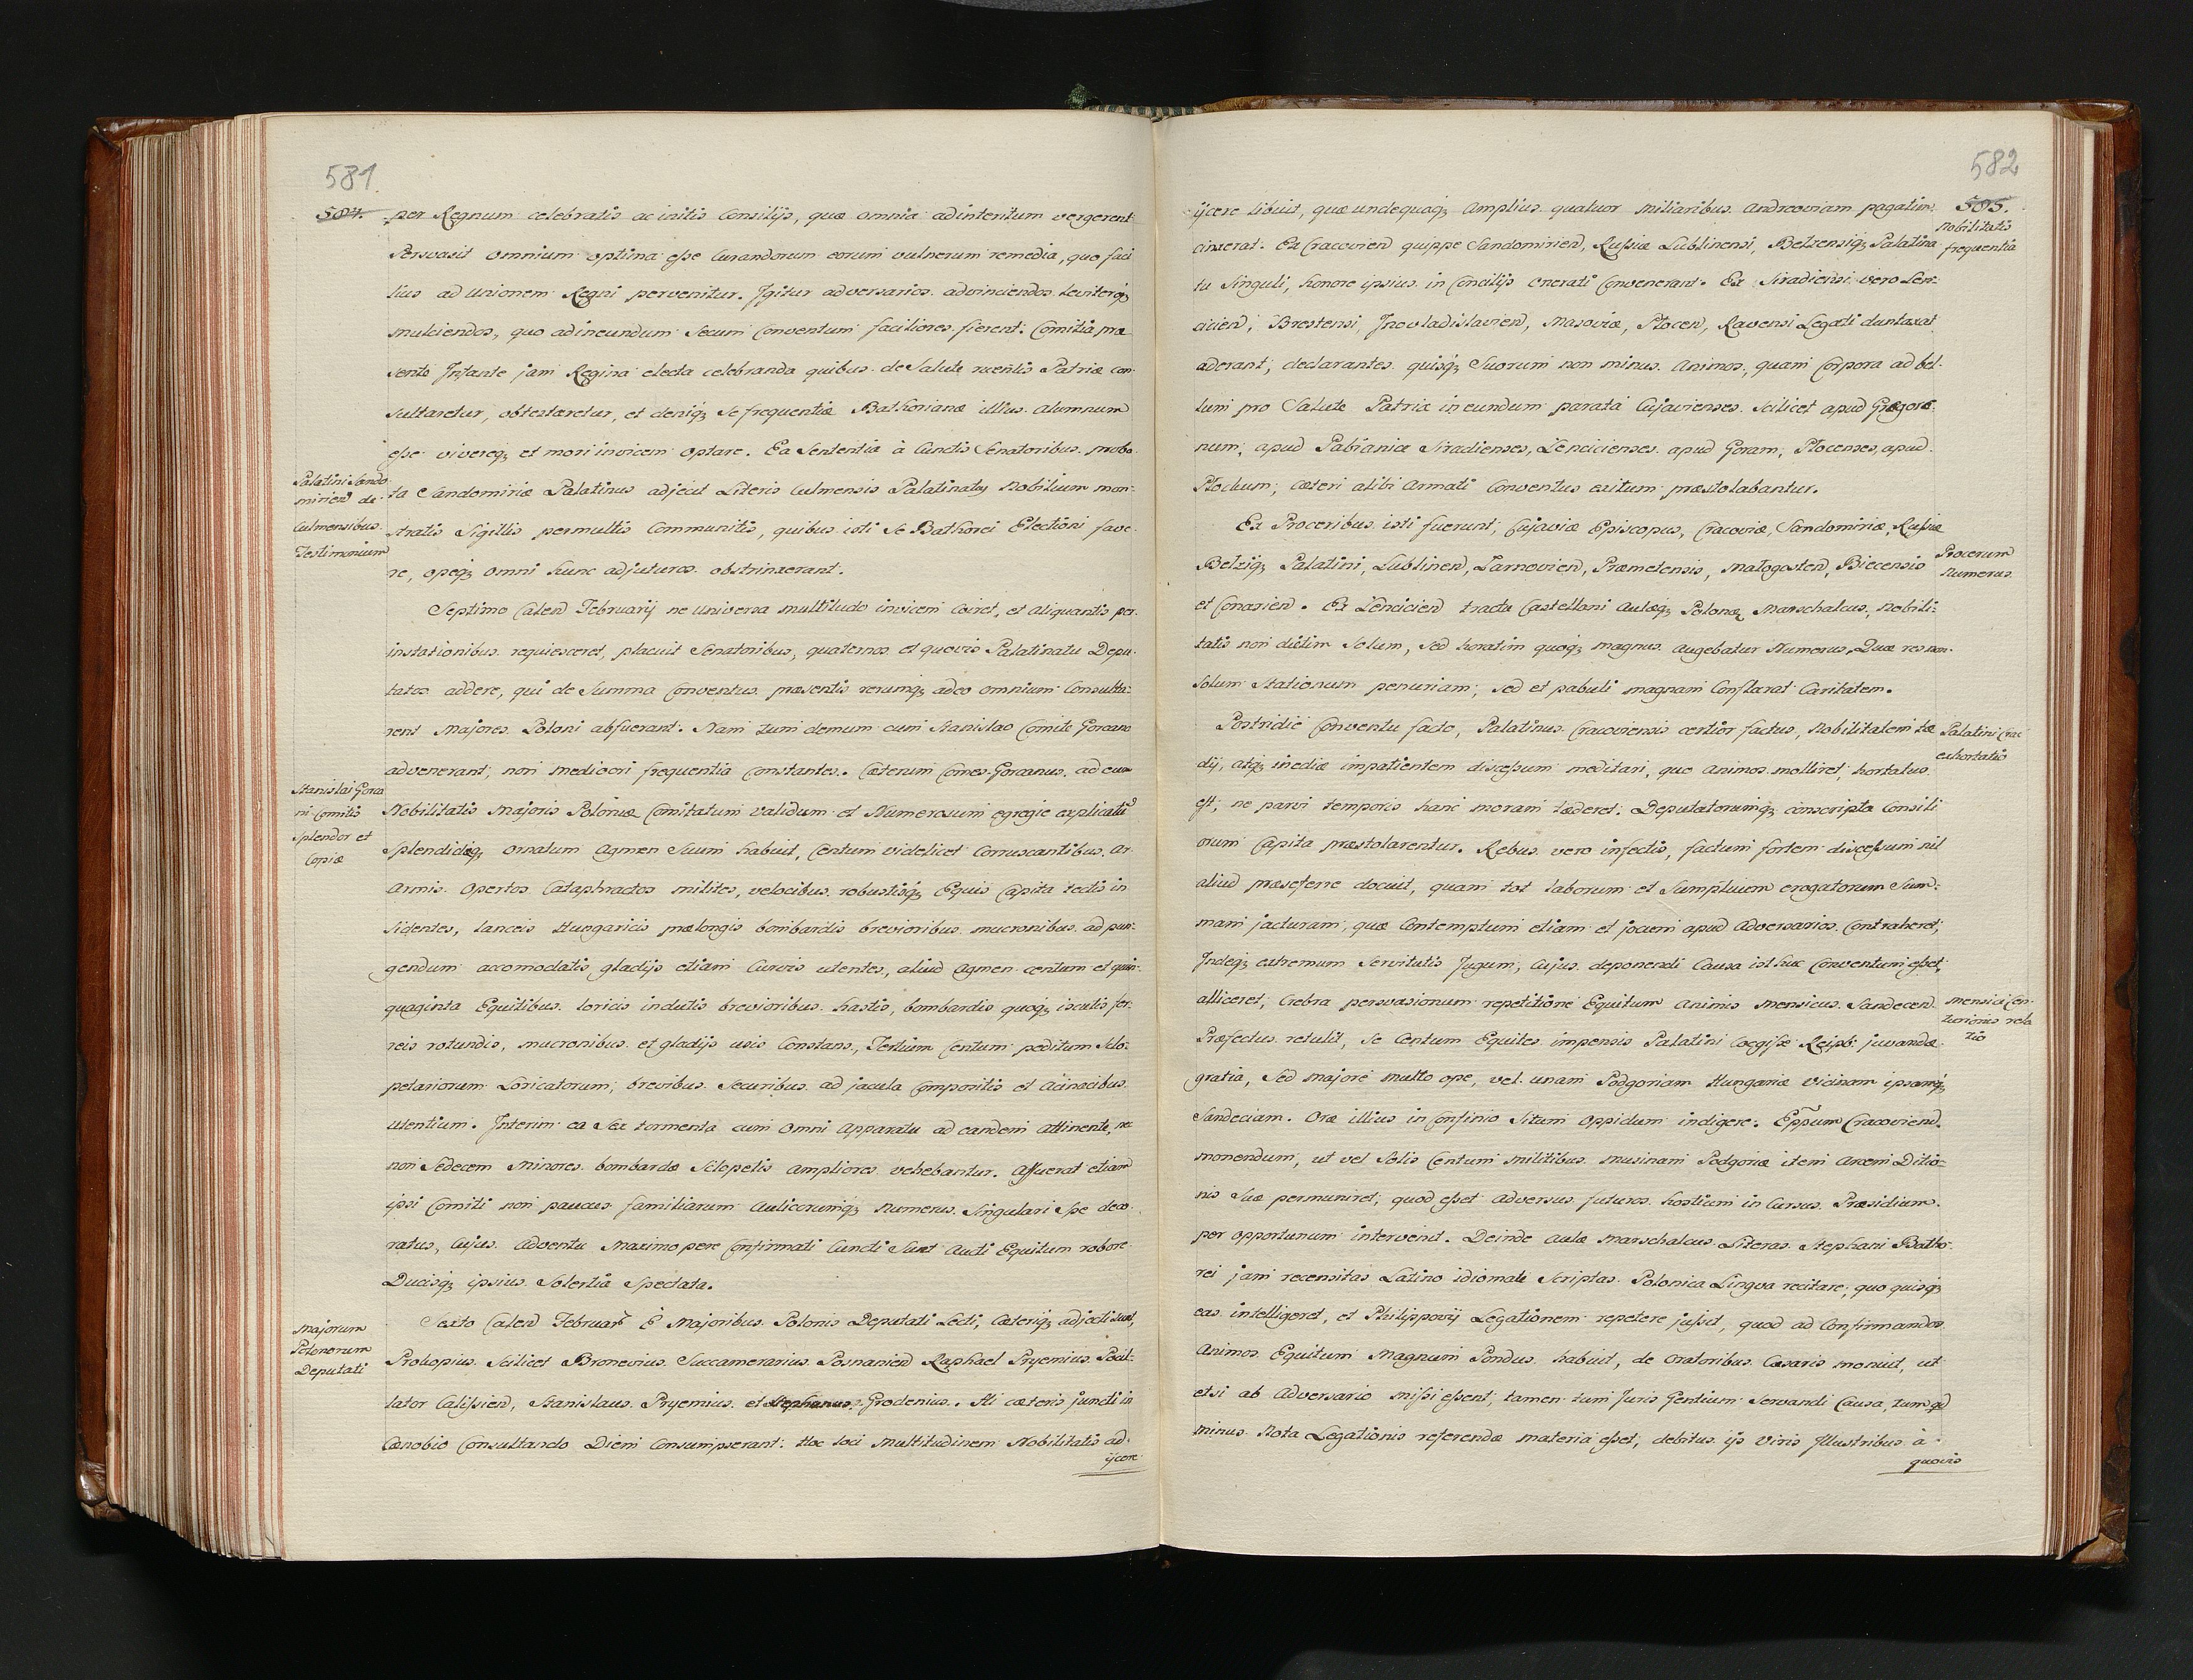 581.
584.
per Regnum celebratis ac initis Consilijs, quæ omnia ad interitum vergerent
Persvasit omnium optima eſse Curandorum eorum vulnerum remedia, quo faci
lius ad Unionem Regni pervenitur. Igitur adversarios advinciendos leviterq;
mulciendos, quo ad ineundum Secum Conventum faciliores fierent: Comitia præ
sente Infante jam Regina electa celebranda quibus de Salute ruentis Patriæ con-
sultaretur, obtestaretur, et deniq; se frequentiæ Bathorianæ illius Alumnum
eſse vivereq; et mori invicem optare. Ea Sententia à Cunctis Senatoribus proba-
Palatini Sando
mirien de
Culmensibus
Testimonium
ta Sandomiriæ Palatinus adjecit Literis Culmensis Palatinatus Nobilium mon-
stratis Sigillis permultis Communitis, quibus isti Se Bathorei Electioni fave-
re, opeq; omni hunc adjuturos obstrinxerant.
Septimo Calend Februarij ne Universa multitudo invicem Coiret, et aliquantis per
instationibus requiesceret, placuit Senatoribus, quaternos et quovis Palatinatu Depu-
tatos addere, qui de Summa Conventus præsentis rerumq; adeo omnium Consulta-
rent Majores Poloni abfuerant. Nam tum demum cum Stanislao Comite Gorcano
advenerant, non mediocri frequentia Constantes. Cæterum Comes Gorcanus, ad eum
Stanislai Gorca
ni Comitis
Splendor et
Copiæ
Nobilitatis Majoris Poloniæ Comitatum validum et Numerosum egregie explicatū
Splendideq; ornatum Agmen Suum habuit, Centum videlicet Corruscantibus Ar
Armis opertos Cataphractos milites, velocibus robustisq; Equis Capita tectis in
sidentes, lanceis Hungaricis prælongis bombardis brevioribus mucronibus ad pun-
gendum accomodatis, gladijs etiam Curvis utentes, aliud Agmen centum et quin-
quaginta Equitibus loricis indutis brevioribus hastis, bombardis quoq; iscutis fer-
reis rotundis, mucronibus et gladijs usis Constans, Tertium Centum peditum Sclo-
petariorum Loricatorum, brevibus Securibus ad jacula Compositis et Acinacibus
Utentium. Interim ea Sex tormenta cum Omni Apparatu ad eandem attinente, nec
non Sedecem Minores bombardæ Sclopetis ampliores vehebantur. Affuerat etiam
ipsi Comiti non paucus familiarum Aulicorumq; Numerus Singulari Spe deco-
ratus, Cujus Adventu Maximopere Confirmati Cuncti Sunt Aucti Equitum robore
Ducisq; ipsius Solertia Spectata.
Majorum
Polonorum
Deputati
Sexto Calend Februar È Majoribus Polonis Deputati Lecti, Cæteriq; adjecti Sunt,
Prokopius Scilicet Bronevius Succamerarius Posnanien Raphael Pryemius Pocil-
lator Caliſsien, Stanislaus Pryemius et Stephanus Grodenius. Hi cæteris juncti in
Cœnobio Consultando Diem Consumpserant: Hoc loci Multitudinem Nobilitatis ad-
ijcere
582
585.
ijcere libuit, quæ undequaq; Amplius quatuor Miliaribus Andreoviam pagatim
Nobilitatis
frequentia
cinxerat. Ex Cracovien quippe Sandomirien, Ruſsiæ Lublinensi, Belzensiq; Palatina
tu Singuli, honore ipsius in Concilijs onerati Convenerant. Ex Siradiensi vero Len-
cicien, Brestensi, Inovladislavien, Masoviæ, Plocen, Ravensi Legati duntaxat
aderant, declarantes quisq; Suorum non minus Animos, quam Corpora ad bel-
lum pro Salute Patriæ ineundum parata Cujavienses Scilicet apud
num, apud Pabianice Siradienses, Lencicienses apud Goram, Plocenses, apud
Plocium, Cæteri alibi Armati Conventus exitum præstolabantur.
Ex Proceribus isti fuerunt, Cujaviæ Episcopus, Cracoviæ, Sandomiriæ, Ruſsiæ
Procerum
Numerus
Belziq; Palatini, Lublinen, Tarnovien, Præmetensis, Malogosten, Biecensis
et Conarien. Ex Lencicien tractu Castellani Aulæq; Polonæ Marschalcus, Nobili-
tatis non dietim Solum, Sed horatim quoq; magnus augebatur Numerus. Quæ res non
Solum Stationum penuriam, sed et pabuli magnam Conflarat Caritatem.
Postridie Conventu facto, Palatinus Cracoviensis certior factus, Nobilitatem tæ
Palatini Crac
exhortatio
dij, atq; inediæ impatientem disceſsum meditari, quo animos molliret, hortatus
est, ne parvi temporis hanc moram tæderet. Deputatorumq; conscripta Consili
orum Capita præstolarentur. Rebus vero infectis, factum fortem disceſsum nil
aliud præseferre docuit, quam tot laborum et Sumptuum erogatorum Sum-
mam jacturam, quæ Contemptum etiam et jocum apud Adversarios Contraheret,
Indeq; extremum Servitutis Jugum, Cujus deponendi Causa ist huc Conventum eſset,
alliceret, Crebra persvasionum repetitione Equitum Animis Mensicus Sandecen
Mensici Cen-
turionis rela
tio
Præfectus retulit, Se Centum Equites impensis Palatini Coegiſse Reipb: juvandæ
gratia, Sed Majore Multo ope, vel unam Podgoriam Hungariæ Vicinam ipsamq;
Sandeciam. Oræ illius in Confinio Situm Oppidum indigere. Epp̃um Cracovien
monendum, ut vel Solis Centum Militibus Musinam Podgoriæ item Arcem Ditio-
nis Suæ permuniret, quod eſset Adversus futuros hostium in Cursus Præsidium
per opportunum intervenit. Deinde Aulæ Marschalcus Literas Stephani Batho-
rei jam recensitas Latino idiomate Scriptas Polonica Lingva recitare, quo quisq;
eas intelligeret, et Philippovij Legationem repetere juſsit, quod ad Confirmandos
Animos Equitum Magnum Pondus habuit, de Oratoribus Cæsaris monuit, ut
etsi ab Adversario miſsi eſsent, tamen tum Juris Gentium Servandi Causa, tum qd
minus Nota Legationis referendæ materia eſset, debitus ijs Viris Illustribus à
quovis